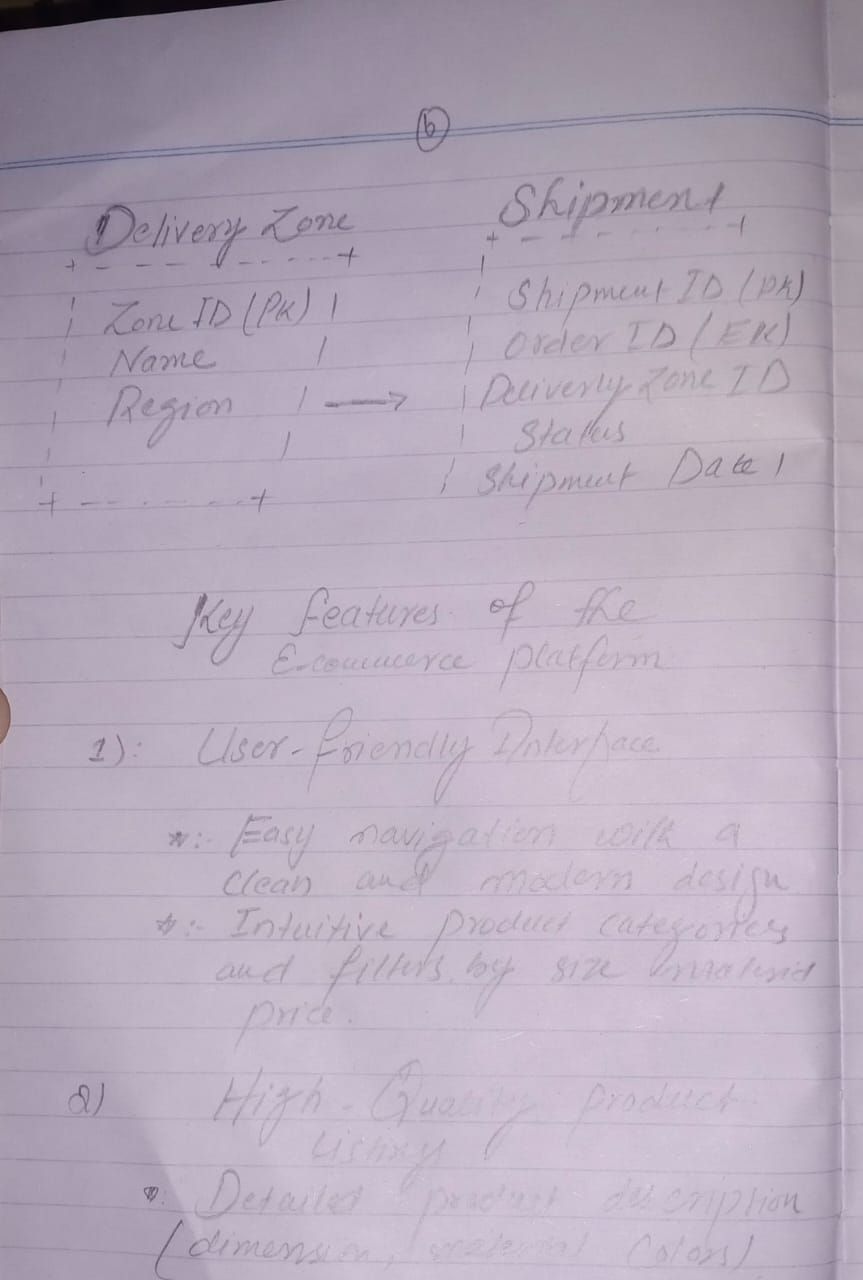 6
Delivery Zone
Shipment
Zone ID (PK)
Name
Region
Shipment ID (PK)
Order ID (EK)
Deliverly Zone ID
Status
Shipment Date
Key features of the
E-commerce platform
1): User-friendly Interface
*:- Easy navigation with a
clean and modern design
*:- Intuitive product categories
and filters by size material
price.
2) High-Quality product
Listings
*: Detailed product description
(dimension, material Colors)